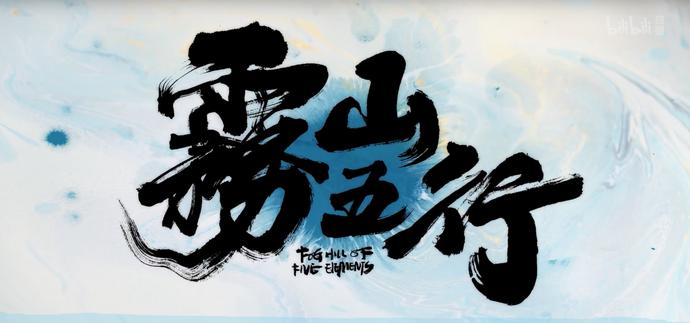 霧山五行
FOG HILL OF
FIVE ELEMENTS
bilibili